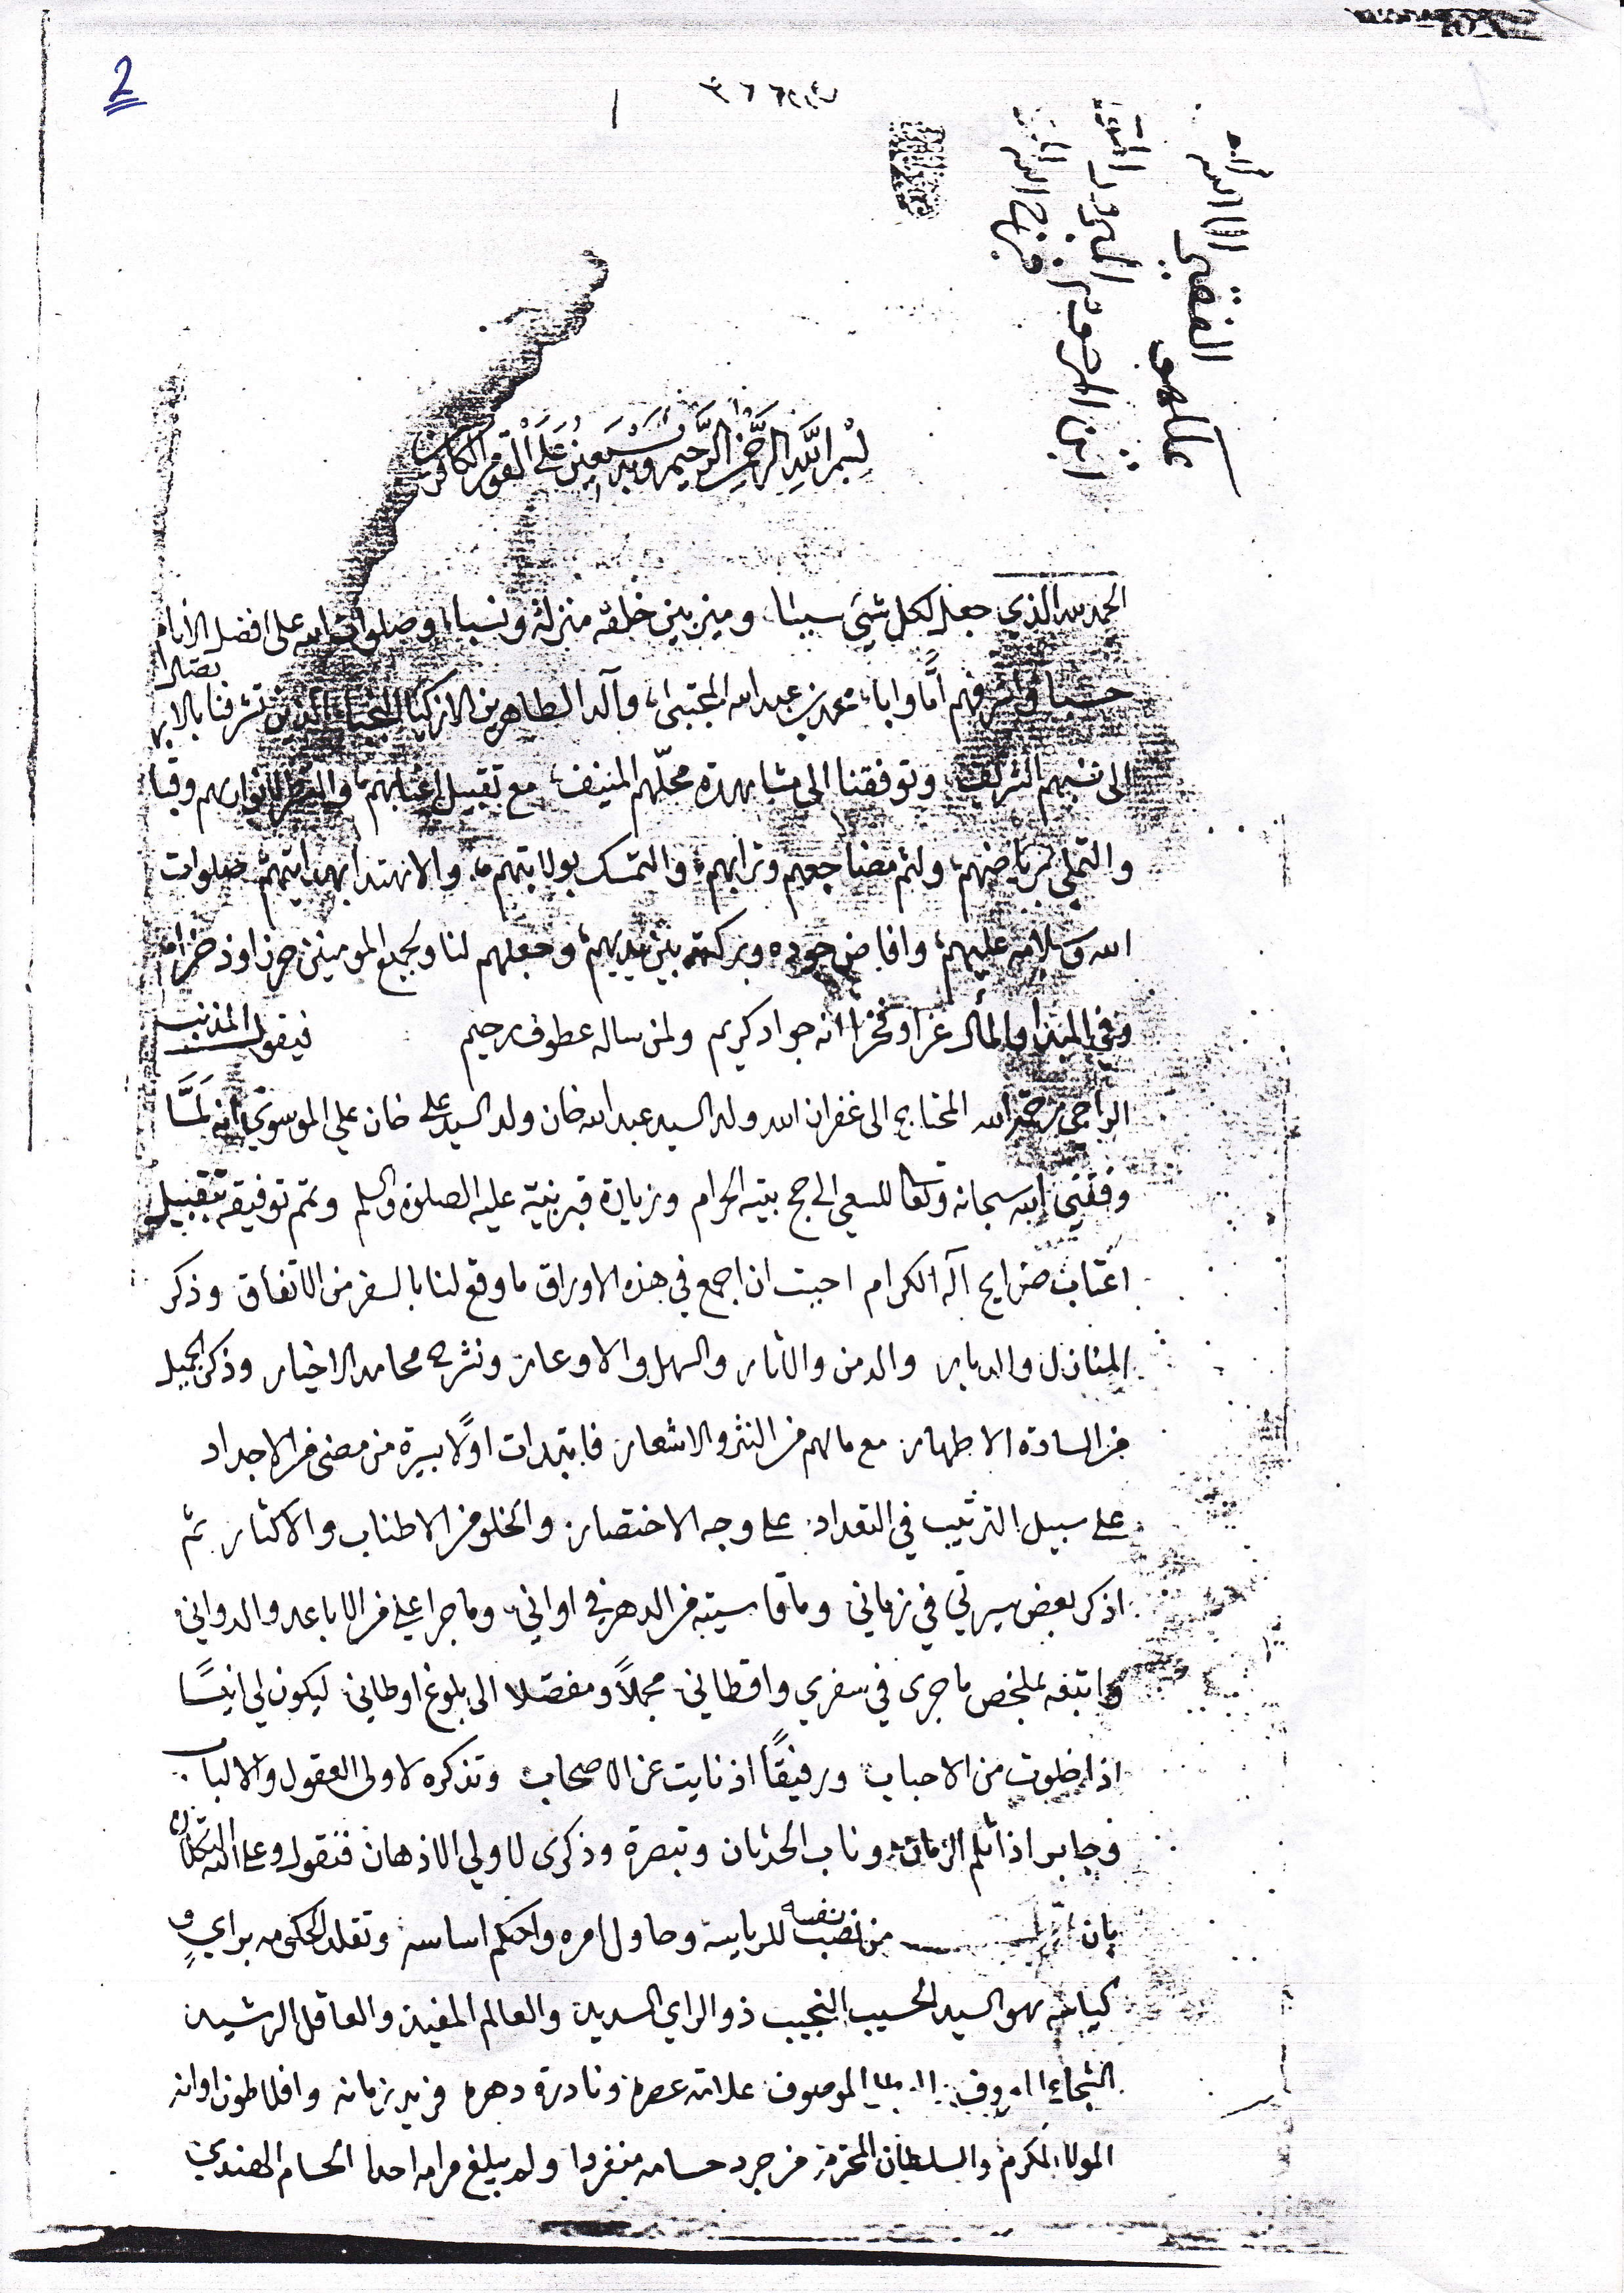 2
الفقير الى الله
بسم الله الرحمن الرحيم وبه نستعين على القوم الكافرين
الحمد لله الذي جعل لكل شيء سببا، وميز بين خلقه منزلة ونسبا، وصلوات الله على افضل الانام
حسبا واشرفهم اما وابا، محمد بن عبد الله المجتبى، وآله الطاهرين الازكياء النجباء الذين تشرفنا بالا
الى نسبهم الشريف، وتوفقنا الى مشاهدة محلهم المنيف، مع تقبيل اعتابهم، و
والتملي برياضهم، ولثم مضاجعهم وترابهم، والتمسك بولايتهم، والاهتدا بهدايتهم، صلوات
الله وسلامه عليهم، وافاض جوده وبركته بين يديهم، وجعلهم لنا ولجميع المومنين حرزا وذخرا،
وفي المبدا والمآل عزا وفخرا انه جواد كريم ولمن ساله عطوف رحيم فيقول المذنب
الراجي رحمة الله المحتاج الى غفران الله ولد السيد عبد الله خان ولد السيد علي خان علي الموسوي انه لمّا
وفقني الله سبحانه وتعا للسعي الى حج بيته الحرام وزيارة قبر نبيه عليه الصلوة والسلم وتمم توفيقه بتقبيل
اعتاب ضرايح آله الكرام احببت ان اجمع في هذه الاوراق ما وقع لنا بالسفر من الاتفاق وذكر
المنازل والديار والدمن والاثار والسهل والاوعار ونشرح محامد الاخيار وذكر الجميل
من السادة الاطهار مع مالهم من النثر والاشعار فابتدات اولًا بسيرة من مضى من الاجداد
على سبيل الترتيب في التعداد على وجه الاختصار والخلو من الاطناب والاكثار ثم
اذكر بعض سيرتي في زماني وما قاسيته من الدهر في اواني وما جرا علي من الاباعد والدواني
واتبعه بملخص ما جرى في سفري واقطاني مجملًا ومفصلا الى بلوغ اوطاني ليكون لي انيسًا
اذا خلوت من الاحباب ورفيقًا اذ نايت عن الاصحاب وتذكره لاولى العقول والالباب
وجابر اذا ثلم الزمان وناب الحدثان وتبصرة وذكرى لاولي الاذهان فنقول وعلى الله التكلان
بان اول من نصب نفسه للرياسة وحاول امره واحكم اساسه وتقلد الحكومه براي و
كياسه هو السيد الحسيب النجيب ذو الراي السديد والعالم المفيد والعاقل الرشيد
الموصوف علامة عصره ونادرة دهره فريد زمانه وافلاطون اوانه
المولا المكرم والسلطان المحترم من جرد حسامه منفردا ولم يبلغ مرامه احدا الحسام الهندي